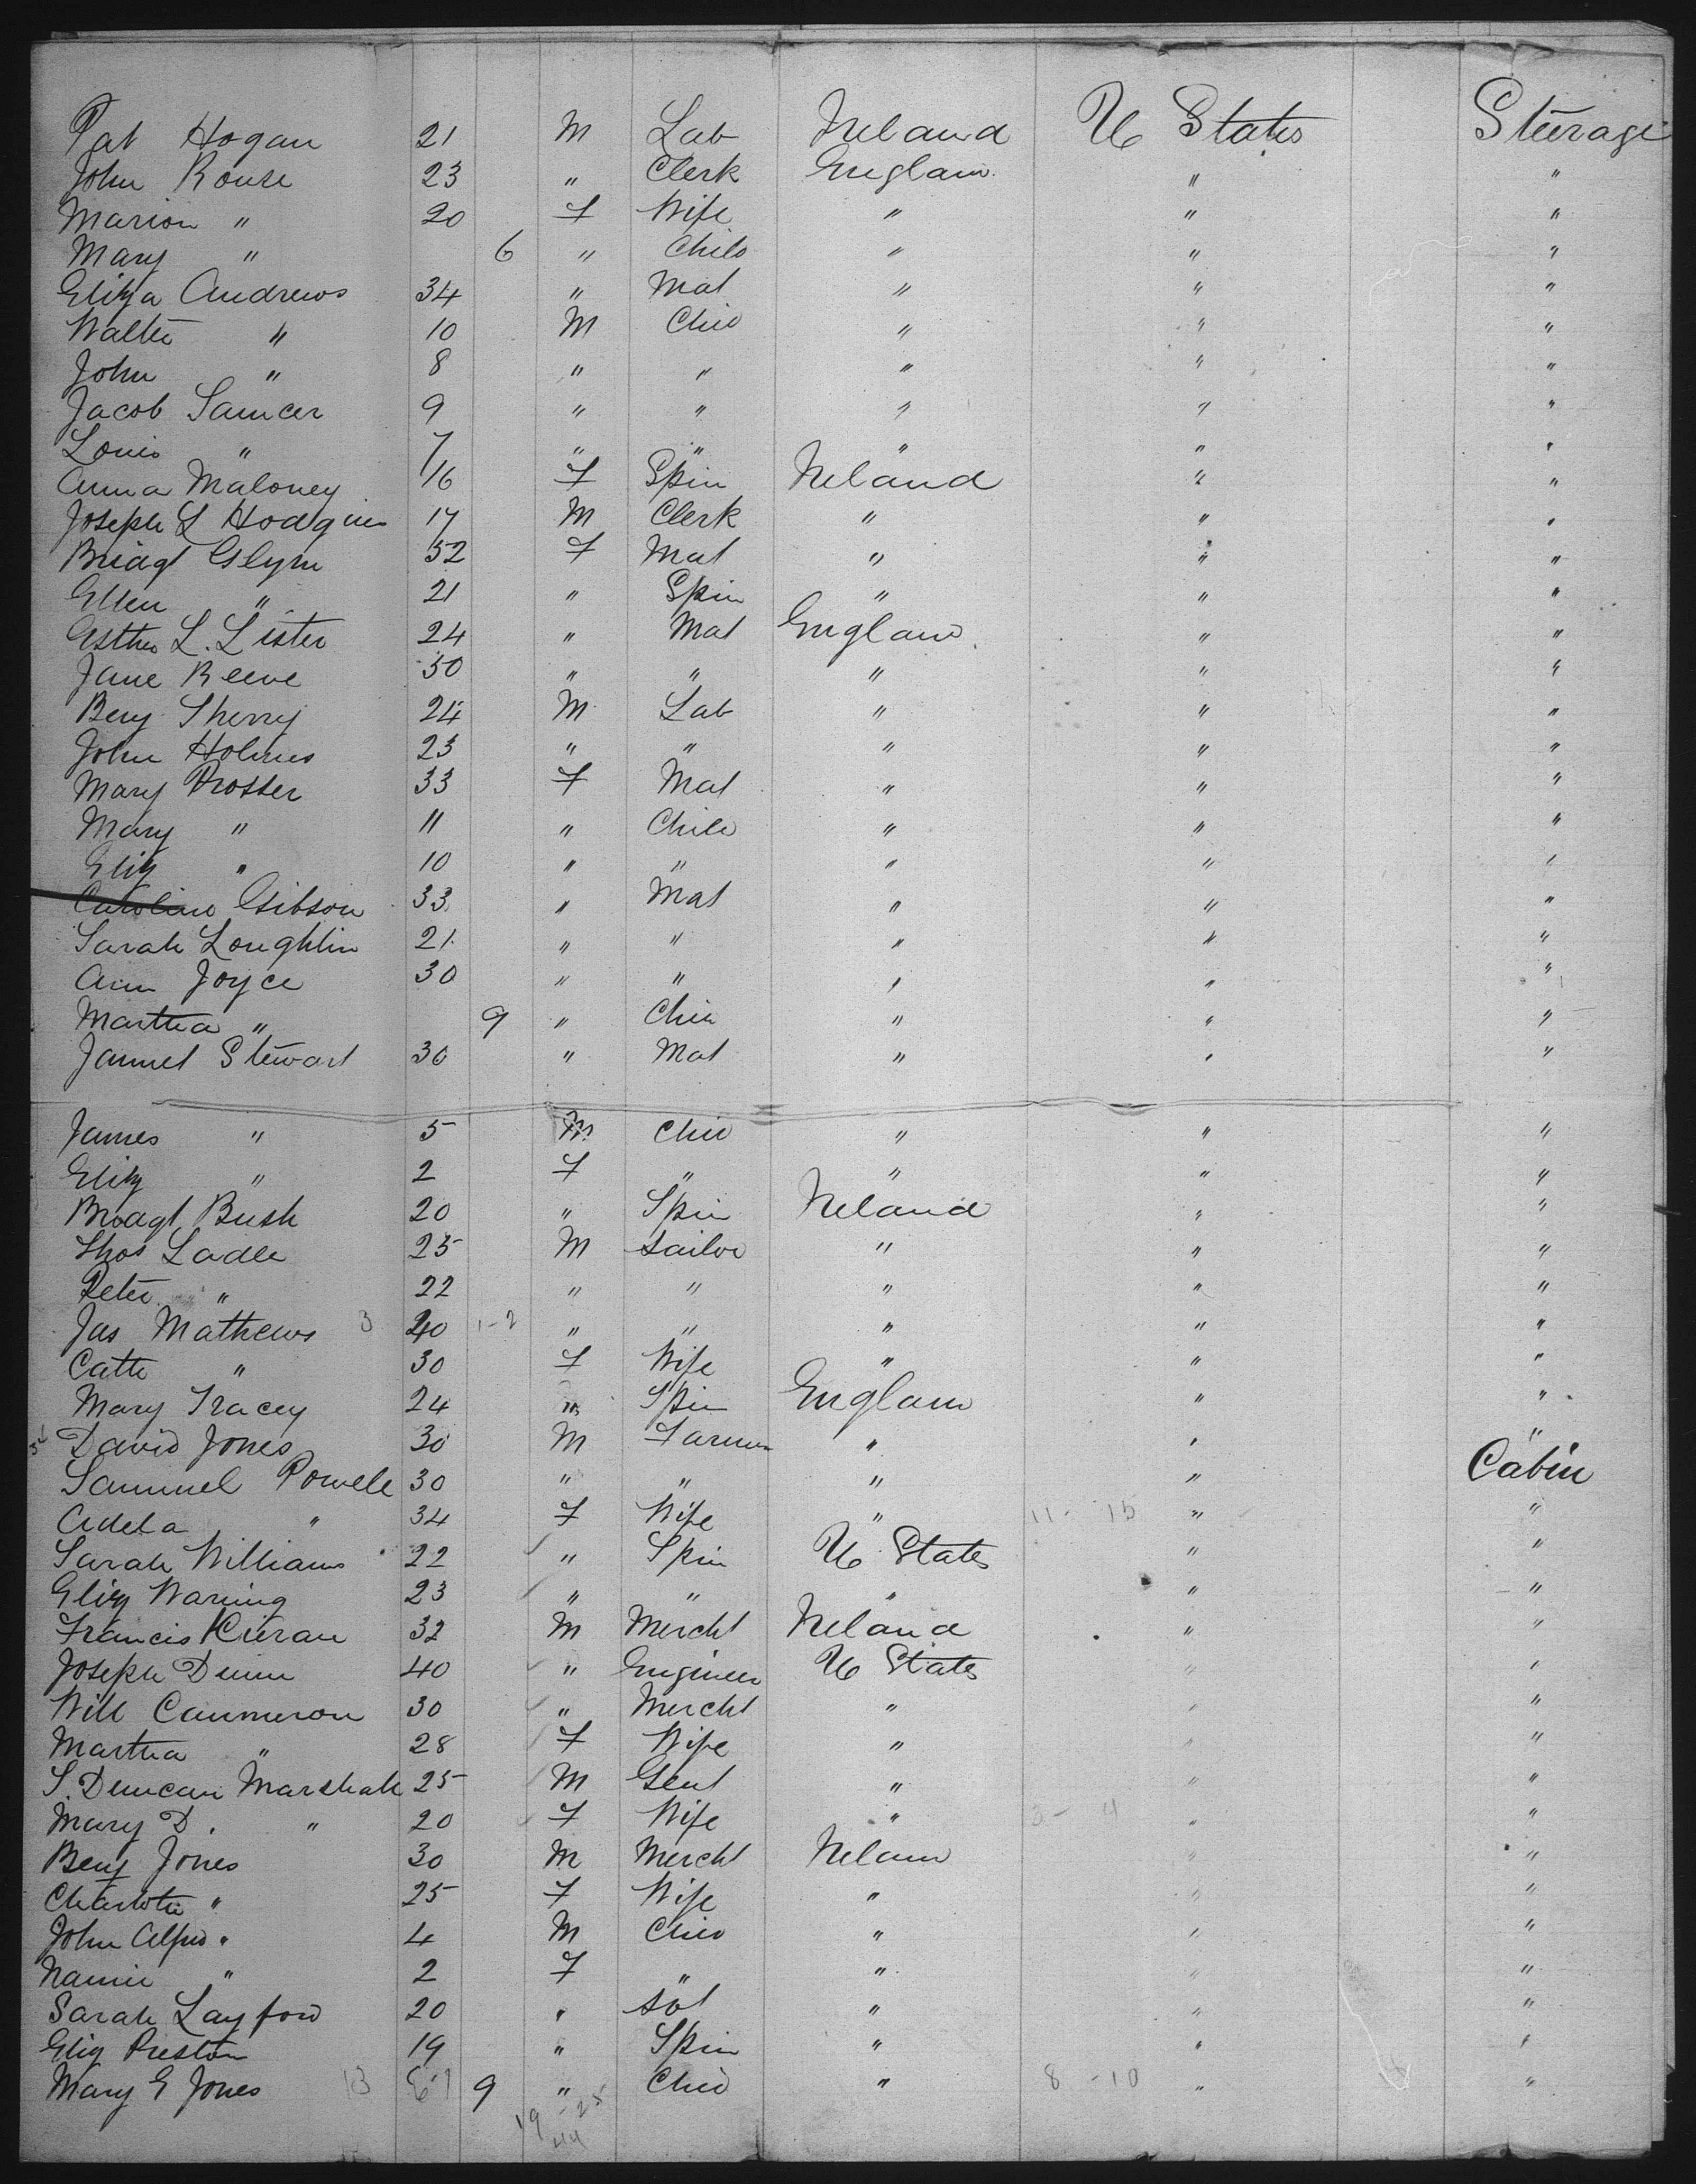 Pat Hogan 21 M Lab Ireland U States Steerage
John Rouse 23 " Clerk Englan " "
Marion " 20 F Wife " " "
Mary " 6 " Child " " "
Eliza Andrews 34 " Mat " " "
Walter " 10 M Chid " " "
John " 8 " " " " "
Jacob Samcer 9 " " " " "
Louis " 7 " " " " "
Anna Maloney 16 F Spin Ireland " "
Joseph L Hodgins 17 M Clerk " " "
Bridgt Glynn 52 F Mat " " "
Ellen " 21 " Spin " " "
Esther L. Lister 24 " Mat England " "
Jane Reeve 30 " " " " "
Benj Sherry 24 M Lab " " "
John Holmes 23 " " " " "
Mary Prosser 33 F Mat " " "
Mary " 11 " Child " " "
Eliz " 10 " " " " "
Caroline Gibson 33 " Mat " " "
Sarah Loughlin 21 " " " " "
Ann Joyce 30 " " " " "
Martha " 9 " Chid " " "
Jannet Stewart 30 " Mat " " "
James " 5 M Chid " " "
Eliz " 2 F " " " "
Bridgt Bush 20 " Spin Ireland " "
Thos Ladle 25 M Sailor " " "
Peter " 22 " " " " "
Jas Mathews 3 40 1-2 " " " " "
Cath " 30 F Wife " " "
Mary Tracey 24 " Spin Englan " "
David Jones 30 M Farmer " " "
Sammuel Powell 30 " " " " Cabin
Adela " 34 F Wife " 11- 15 " "
Sarah Williams 22 " Spin U States " "
Eliz Waring 23 " " " " "
Francis Kieran 32 M Mercht Ireland " "
Joseph Dunn 40 " Engineer U States " "
Will Cammeron 30 " Mercht " " "
Martha " 28 F Wife " " "
S. Duncan Marshall 25 M Gent " " "
Mary D. " 20 F Wife " 3- 4 " "
Benj Jones 30 M Mercht Irelan " "
Charlotte " 25 F Wife " " "
John Alfred " 4 M Chid " " "
Nannie " 2 F " " " "
Sarah Layford 20 " Sot " " "
Eliz Preston 19 " Spin " " "
Mary E Jones 13 9 " Chid " 8 -10 " "
19 - 25
44